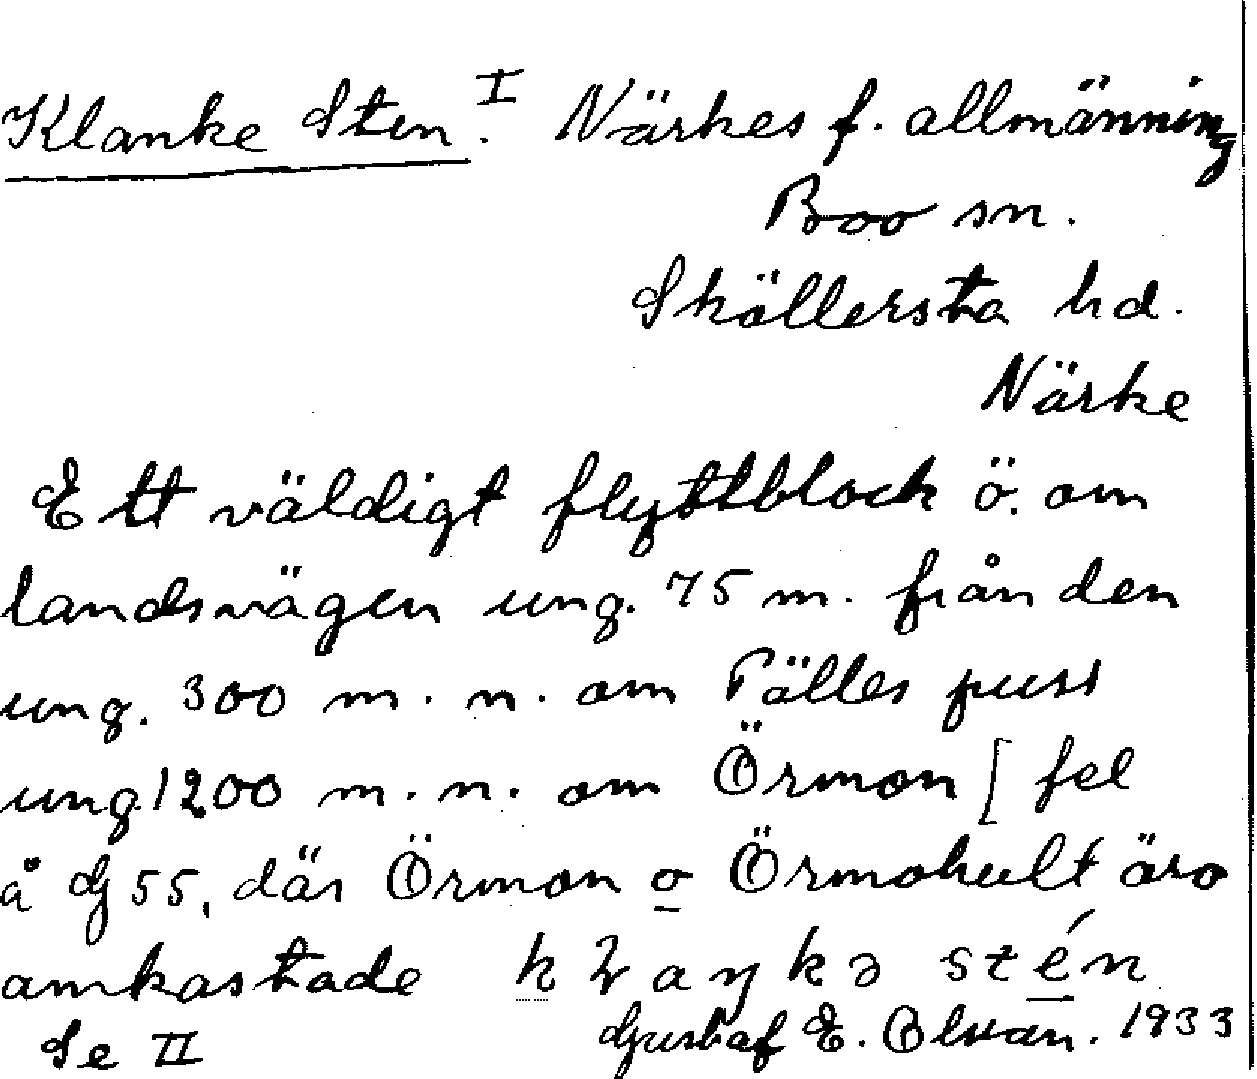 Klanke Sten. I Närkes f. allmänning
Boo sn.
Sköllersta hd.
Närke
Ett väldigt flyttblock ö. om
landsvägen ung. 75 m. från den
ung. 300 m. n. om Pälles puss
ung 1200 m. n. om Örmon [fel
å Gj 55, där Örmon o Örmohult äro
omkastade
Se II Gustaf E. Olvan. 1933